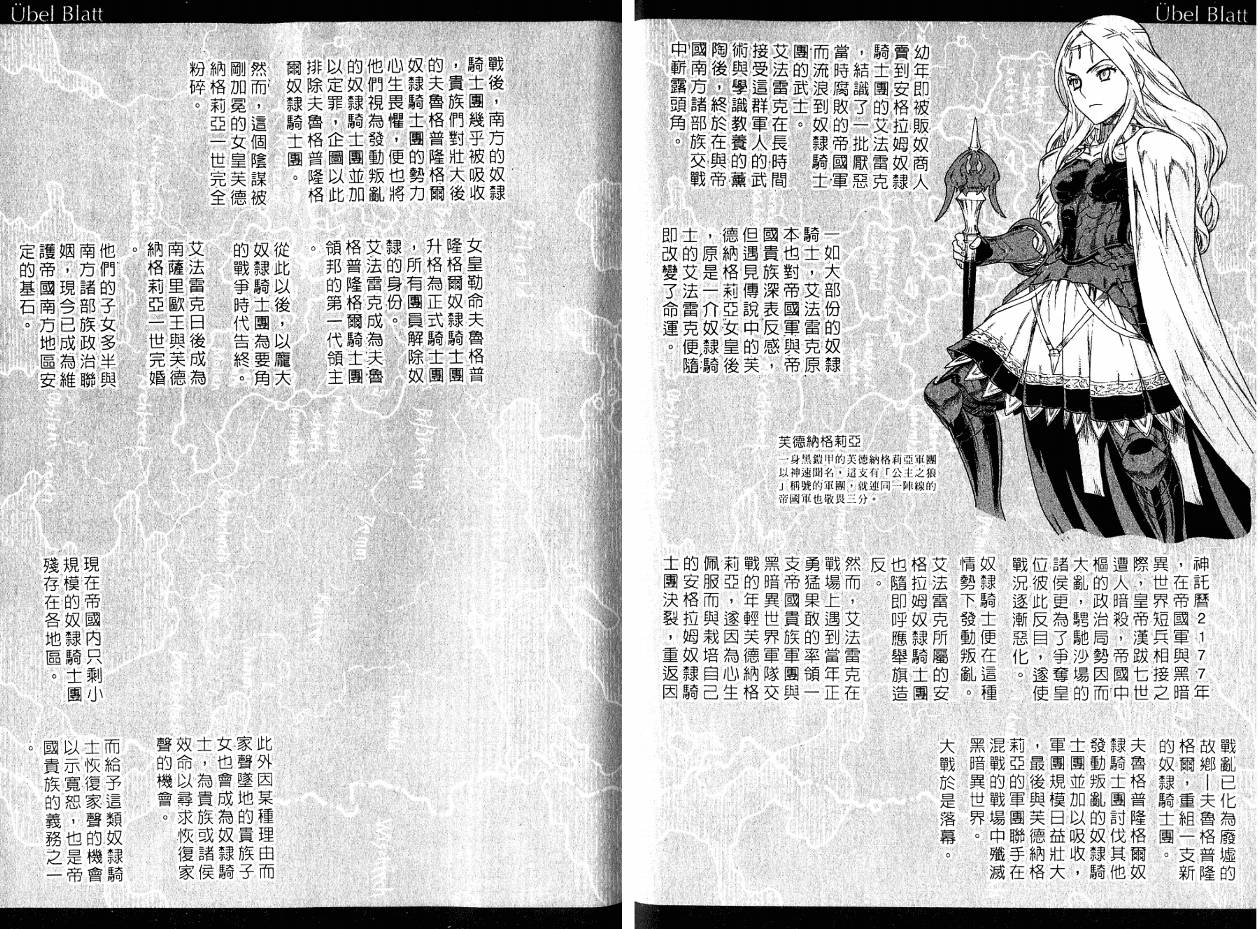 Übel Blatt
幼年即被販奴商人
賣到安格拉姆奴隸
騎士團的艾法雷克
，結識了一批厭惡
當時腐敗的帝國軍
而流浪到奴隸騎士
團的武士。
艾法雷克在長時間
接受這群軍人的武
術與學識教養的薰
陶後，終於在與帝
國南方諸部族交戰
中嶄露頭角。
一如大部份的奴隸
騎士，艾法雷克原
本也對帝國軍與帝
國貴族深表反感，
但遇見傳說中的芙
德納格莉亞女皇後
，原是一介奴隸騎
士的艾法雷克便隨
即改變了命運。
芙德納格莉亞
一身黑鎧甲的芙德納格莉亞軍團
以神速聞名，這支有「公主之狼
」稱號的軍團，就連同一陣線的
帝國軍也敬畏三分。
神託曆2177年
，在帝國軍與黑暗
異世界短兵相接之
際，皇帝漢跋七世
遭人暗殺，帝國中
樞的政治局勢因而
大亂，騁馳沙場的
諸侯更為了爭奪皇
位彼此反目，遂使
戰況逐漸惡化。
奴隸騎士便在這種
情勢下發動叛亂。
艾法雷克所屬的安
格拉姆奴隸騎士團
也隨即呼應舉旗造
反。
然而，艾法雷克在
戰場上遇到當年正
勇猛果敢的率領一
支帝國貴族軍團與
黑暗異世界軍隊交
戰的年輕芙德納格
莉亞，遂因為心生
佩服而與栽培自己
的安格拉姆奴隸騎
士團決裂，重返因
戰亂已化為廢墟的
故鄉—夫魯格普隆
格爾，重組一支新
的奴隸騎士團。
夫魯格普隆格爾奴
隸騎士團討伐其他
發動叛亂的奴隸騎
士團並加以吸收，
軍團規模日益壯大
，最後與芙德納格
莉亞的軍團聯手在
混戰的戰場中殲滅
黑暗異世界。
大戰於是落幕。
Übel Blatt
戰後，南方的奴隸
騎士團幾乎被吸收
，貴族們對壯大後
的夫魯格普隆格爾
奴隸騎士團的勢力
心生畏懼，便也將
他們視為發動叛亂
的奴隸騎士團並加
以定罪，企圖以此
排除夫魯格普隆格
爾奴隸騎士團。
然而，這個陰謀被
剛加冕的女皇芙德
納格莉亞一世完全
粉碎。
女皇勒命夫魯格普
隆格爾奴隸騎士團
升格為正式騎士團
，所有團員解除奴
隸的身份。
艾法雷克成為夫魯
格普隆格爾騎士團
領邦的第一代領主
。
從此以後，以龐大
奴隸騎士團為要角
的戰爭時代告終。
艾法雷克日後成為
南薩里歐王與芙德
納格莉亞一世完婚
。
他們的子女多半與
南方諸部族政治聯
姻，現今已成為維
護帝國南方地區安
定的基石。
現在帝國內只剩小
規模的奴隸騎士團
殘存在各地區。
此外因某種理由而
家聲墜地的貴族子
女也會成為奴隸騎
士，為貴族或諸侯
效命以尋求恢復家
聲的機會。
而給予這類奴隸騎
士恢復家聲的機會
以示寬恕，也是帝
國貴族的義務之一
。